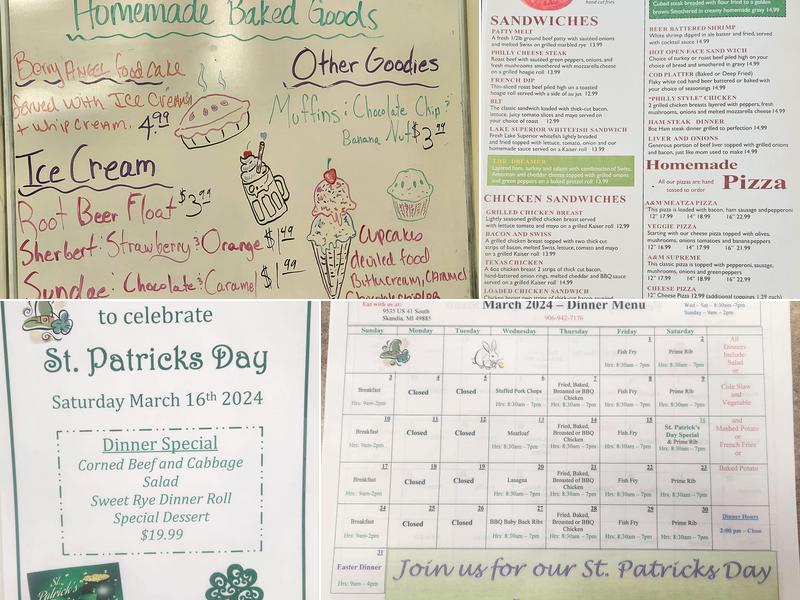 Homemade Baked Goods
Berry Angel food cake
Served with Ice Cream
+ whip cream. 4.99
Other Goodies
Muffins: Chocolate Chip &
Banana Nut $3
Ice Cream
Root Beer Float $3.99
Sherbert: Strawberry & Orange $1.49
Sundae: Chocolate & Caramel $1.99
Cupcakes
deviled food
Buttercream, Caramel
hand-cut fries
SANDWICHES
PATTY MELT
A fresh 1/2lb ground beef patty with sauteed onions
and melted Swiss on grilled marbled rye 13.99
PHILLY CHEESE STEAK
Roast beef with sauteed green peppers, onions, and
fresh mushrooms smothered with mozzarella cheese
on a grilled hoagie roll 13.99
FRENCH DIP
Thin-sliced roast beef piled high on a toasted
hoagie roll served with a side of au jus 12.99
BLT
The classic sandwich loaded with thick-cut bacon,
lettuce, juicy tomato slices and mayo served on
your choice of toast 12.99
LAKE SUPERIOR WHITEFISH SANDWICH
Fresh Lake Superior Whitefish lightly breaded
and fried topped with lettuce, tomato, onion and our
homemade sauce served on a Kaiser roll 13.99
THE DREAMER
Layered ham, turkey and salami with combination of Swiss,
American and cheddar cheese topped with grilled onions
and green peppers on a baked pretzel roll 13.99
CHICKEN SANDWICHES
GRILLED CHICKEN BREAST
Lightly seasoned grilled chicken breast served
with lettuce tomato and mayo on a grilled Kaiser roll 12.99
BACON AND SWISS
A grilled chicken breast topped with two thick cut
strips of bacon, melted Swiss, lettuce, tomato and mayo
on a grilled Kaiser roll 13.99
TEXAS CHICKEN
A 6oz chicken breast 2 strips of thick cut bacon,
hand-battered onion rings, melted cheddar and BBQ sauce
served on a grilled Kaiser roll 14.99
LOADED CHICKEN SANDWICH
Cubed steak breaded with flour fried to a golden
brown. Smothered in creamy homemade gravy 14.99
BEER BATTERED SHRIMP
White shrimp dipped in ale batter and fried, served
with cocktail sauce 14.99
HOT OPEN FACE SANDWICH
Choice of turkey or roast beef piled high on your
choice of bread and smothered in gravy 14.99
COD PLATTER (Baked or Deep Fried)
Flaky white cod hand beer battered or baked with your
choice of seasonings 14.99
"PHILLY STYLE" CHICKEN
2 grilled chicken breasts layered with peppers, fresh
mushrooms, onions and melted mozzarella cheese 14.99
HAM STEAK DINNER
8oz Ham steak dinner grilled to perfection 14.99
LIVER AND ONIONS
Generous portion of beef liver topped with grilled onions
and bacon, just like mom used to make 14.99
Homemade
All our pizzas are hand
tossed to order
Pizza
A&M MEATZA PIZZA
This pizza is loaded with bacon, ham, sausage and pepperoni
12" 17.99 14" 18.99 16" 22.99
VEGGIE PIZZA
Starting with our cheese pizza topped with olives,
mushrooms, onions tomatoes and banana peppers
12" 16.99 14" 17.99 16" 21.99
A&M SUPREME
This classic pizza is topped with pepperoni, sausage,
mushrooms, onions and green peppers
12" 17.99 14" 18.99 16" 22.99
CHEESE PIZZA
12" Cheese Pizza 12.99 (additional toppings 1.29 each)
to celebrate
St. Patricks Day
Saturday March 16th 2024
Dinner Special
Corned Beef and Cabbage
Salad
Sweet Rye Dinner Roll
Special Dessert
$19.99
St.
Patrick's
Eat with us at:
9535 US 41 South
Skandia, MI 49885
March 2024 – Dinner Menu
906-942-7176
Wed – Sat – 8:30am-7pm
Sunday – 9am – 2pm
Sunday Monday Tuesday Wednesday Thursday Friday Saturday
1 2
Fish Fry Prime Rib
Hrs: 8:30am – 7pm Hrs: 8:30am – 7pm
All
Dinners
Include
Salad
or
Cole Slaw
and
Vegetable
and
Mashed Potato
or
French Fries
or
Baked Potato
3 4 5 6 7 8 9
Breakfast Closed Closed Stuffed Pork Chops Fried, Baked, Broasted or BBQ Chicken Fish Fry Prime Rib
Hrs: 9am-2pm Hrs: 8:30am – 7pm Hrs: 8:30am – 7pm Hrs: 8:30am – 7pm Hrs: 8:30am – 7pm
10 11 12 13 14 15 16
Breakfast Closed Closed Meatloaf Fried, Baked, Broasted or BBQ Chicken Fish Fry St. Patrick's Day Special & Prime Rib
Hrs: 9am-2pm Hrs: 8:30am – 7pm Hrs: 8:30am – 7pm Hrs: 8:30am – 7pm Hrs: 8:30am – 7pm
17 18 19 20 21 22 23
Breakfast Closed Closed Lasagna Fried, Baked, Broasted of BBQ Chicken Fish Fry Prime Rib
Hrs: 9am-2pm Hrs: 8:30am – 7pm Hrs: 8:30am – 7pm Hrs: 8:30am – 7pm Hrs: 8:30am – 7pm
24 25 26 27 28 29 30
Breakfast Closed Closed BBQ Baby Back Ribs Fried, Baked, Broasted or BBQ Chicken Fish Fry Prime Rib
Hrs: 9am-2pm Hrs: 8:30am – 7pm Hrs: 8:30am – 7pm Hrs: 8:30am – 7pm Hrs: 8:30am – 7pm
Dinner Hours
2:00 pm – Close
31
Easter Dinner
Hrs: 9am – 4pm
Join us for our St. Patricks Day